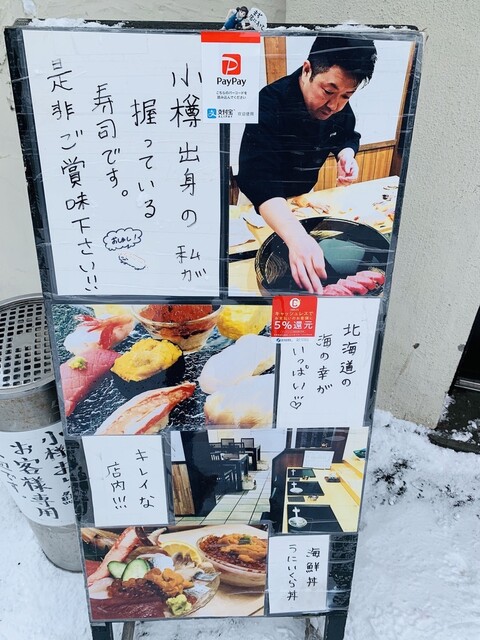 小樽出身の私が
握っている
寿司です。
おいしい!
是非ご賞味下さい!!
PayPay
支付宝
ALIPAY
キャッシュレスで
5%還元
北海道の
海の幸が
いっぱい!!♡
キレイな
店内!!!
海鮮丼
うにいくら丼
お客様専用